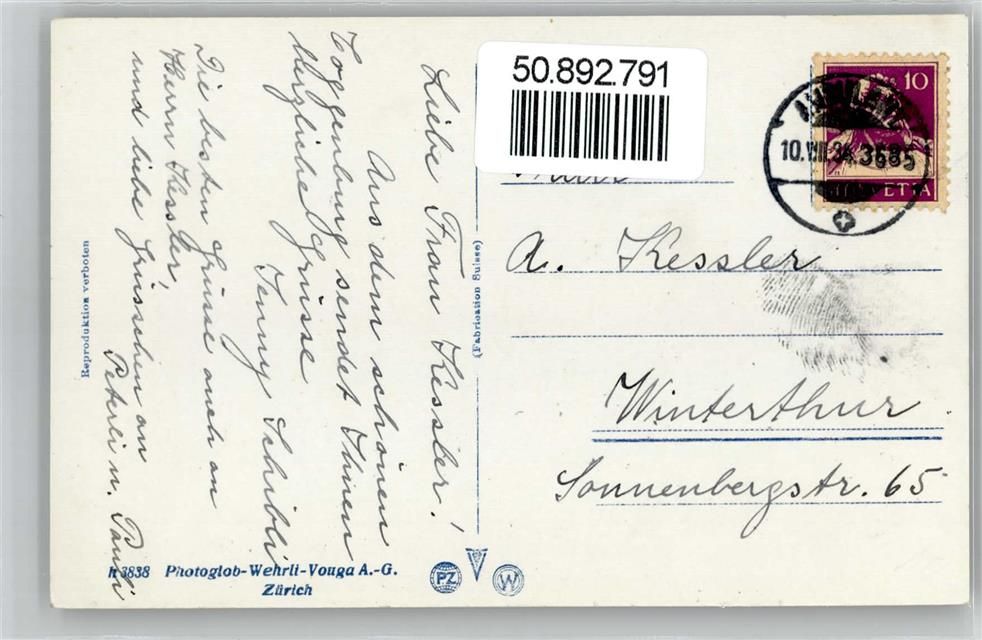 50.892.791
10
AMBULANT
10.VIII.34. 3685
HELVETIA
A. Kessler
Winterthur.
Sonnenbergstr. 65
Liebe Frau Kessler!
Aus dem schönen
Toggenburg sendet Ihnen
Herzliche Grüsse
Jenny Schibli
Die besten Grüsse auch an
Herrn Kessler,
und liebe Grüsschen an
Peterli u. Pauli
Reproduktion verboten
(Fabrication Suisse)
3838 Photoglob-Wehrli-Vouga A.-G.
Zürich
PZ
W